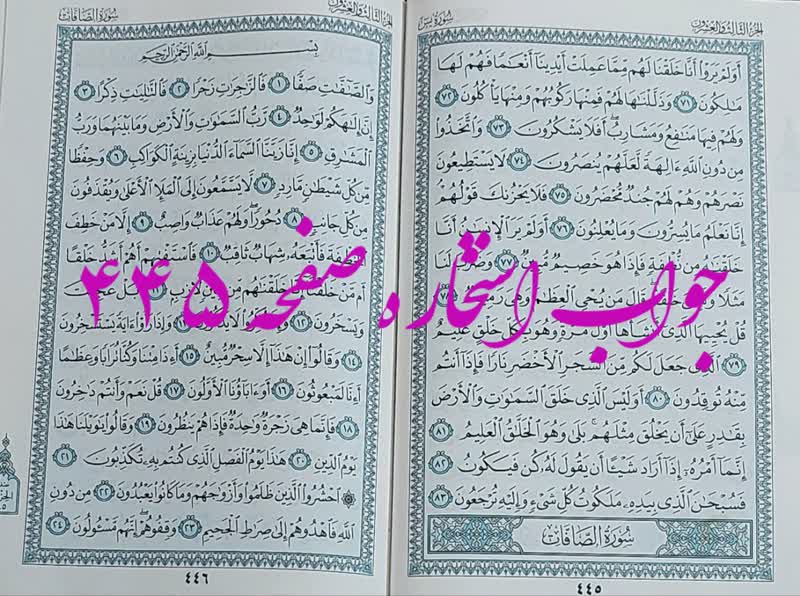 الجزء الثالث والعشرون
سورة يس
أَوَلَمْ يَرَوْا أَنَّا خَلَقْنَا لَهُم مِّمَّا عَمِلَتْ أَيْدِينَا أَنْعَامًا فَهُمْ لَهَا
مَالِكُونَ ٧١ وَذَلَّلْنَاهَا لَهُمْ فَمِنْهَا رَكُوبُهُمْ وَمِنْهَا يَأْكُلُونَ ٧٢
وَلَهُمْ فِيهَا مَنَافِعُ وَمَشَارِبُ أَفَلَا يَشْكُرُونَ ٧٣ وَاتَّخَذُوا
مِن دُونِ اللَّهِ ءَالِهَةً لَّعَلَّهُمْ يُنصَرُونَ ٧٤ لَا يَسْتَطِيعُونَ
نَصْرَهُمْ وَهُمْ لَهُمْ جُندٌ مُّحْضَرُونَ ٧٥ فَلَا يَحْزُنكَ قَوْلُهُمْ
إِنَّا نَعْلَمُ مَا يُسِرُّونَ وَمَا يُعْلِنُونَ ٧٦ أَوَلَمْ يَرَ الْإِنسَانُ أَنَّا
خَلَقْنَاهُ مِن نُّطْفَةٍ فَإِذَا هُوَ خَصِيمٌ مُّبِينٌ ٧٧ وَضَرَبَ لَنَا
مَثَلًا وَنَسِيَ خَلْقَهُ قَالَ مَن يُحْيِي الْعِظَامَ وَهِيَ رَمِيمٌ ٧٨
قُلْ يُحْيِيهَا الَّذِي أَنشَأَهَا أَوَّلَ مَرَّةٍ وَهُوَ بِكُلِّ خَلْقٍ عَلِيمٌ
٧٩ الَّذِي جَعَلَ لَكُم مِّنَ الشَّجَرِ الْأَخْضَرِ نَارًا فَإِذَا أَنتُم
مِّنْهُ تُوقِدُونَ ٨٠ أَوَلَيْسَ الَّذِي خَلَقَ السَّمَاوَاتِ وَالْأَرْضَ
بِقَادِرٍ عَلَى أَن يَخْلُقَ مِثْلَهُم بَلَى وَهُوَ الْخَلَّاقُ الْعَلِيمُ ٨١
إِنَّمَا أَمْرُهُ إِذَا أَرَادَ شَيْئًا أَن يَقُولَ لَهُ كُن فَيَكُونُ ٨٢
فَسُبْحَانَ الَّذِي بِيَدِهِ مَلَكُوتُ كُلِّ شَيْءٍ وَإِلَيْهِ تُرْجَعُونَ ٨٣
سُورَةُ الصَّافَّات
٤٤٥
الجزء الثالث والعشرون
سورة الصافات
بِسْمِ اللَّهِ الرَّحْمَنِ الرَّحِيمِ
وَالصَّافَّاتِ صَفًّا ١ فَالزَّاجِرَاتِ زَجْرًا ٢ فَالتَّالِيَاتِ ذِكْرًا ٣
إِنَّ إِلَهَكُمْ لَوَاحِدٌ ٤ رَّبُّ السَّمَاوَاتِ وَالْأَرْضِ وَمَا بَيْنَهُمَا وَرَبُّ
الْمَشَارِقِ ٥ إِنَّا زَيَّنَّا السَّمَاءَ الدُّنْيَا بِزِينَةٍ الْكَوَاكِبِ ٦ وَحِفْظًا
مِّن كُلِّ شَيْطَانٍ مَّارِدٍ ٧ لَّا يَسَّمَّعُونَ إِلَى الْمَلَإِ الْأَعْلَى وَيُقْذَفُونَ
مِن كُلِّ جَانِبٍ ٨ دُحُورًا وَلَهُمْ عَذَابٌ وَاصِبٌ ٩ إِلَّا مَنْ خَطِفَ
الْخَطْفَةَ فَأَتْبَعَهُ شِهَابٌ ثَاقِبٌ ١٠ فَاسْتَفْتِهِمْ أَهُمْ أَشَدُّ خَلْقًا
أَم مَّنْ خَلَقْنَا إِنَّا خَلَقْنَاهُم مِّن طِينٍ لَّازِبٍ ١١ بَلْ عَجِبْتَ
وَيَسْخَرُونَ ١٢ وَإِذَا ذُكِّرُوا لَا يَذْكُرُونَ ١٣ وَإِذَا رَأَوْا ءَايَةً يَسْتَسْخِرُونَ
١٤ وَقَالُوا إِنْ هَذَا إِلَّا سِحْرٌ مُّبِينٌ ١٥ أَءِذَا مِتْنَا وَكُنَّا تُرَابًا وَعِظَامًا
أَءِنَّا لَمَبْعُوثُونَ ١٦ أَوَءَابَاؤُنَا الْأَوَّلُونَ ١٧ قُلْ نَعَمْ وَأَنتُمْ دَاخِرُونَ
١٨ فَإِنَّمَا هِيَ زَجْرَةٌ وَاحِدَةٌ فَإِذَا هُمْ يَنظُرُونَ ١٩ وَقَالُوا يَاوَيْلَنَا هَذَا
يَوْمُ الدِّينِ ٢٠ هَذَا يَوْمُ الْفَصْلِ الَّذِي كُنتُم بِهِ تُكَذِّبُونَ ٢١
احْشُرُوا الَّذِينَ ظَلَمُوا وَأَزْوَاجَهُمْ وَمَا كَانُوا يَعْبُدُونَ ٢٢ مِن دُونِ
اللَّهِ فَاهْدُوهُمْ إِلَى صِرَاطِ الْجَحِيمِ ٢٣ وَقِفُوهُمْ إِنَّهُم مَّسْئُولُونَ ٢٤
٤٤٦
جواب استخاره صفحه ۴۴۵